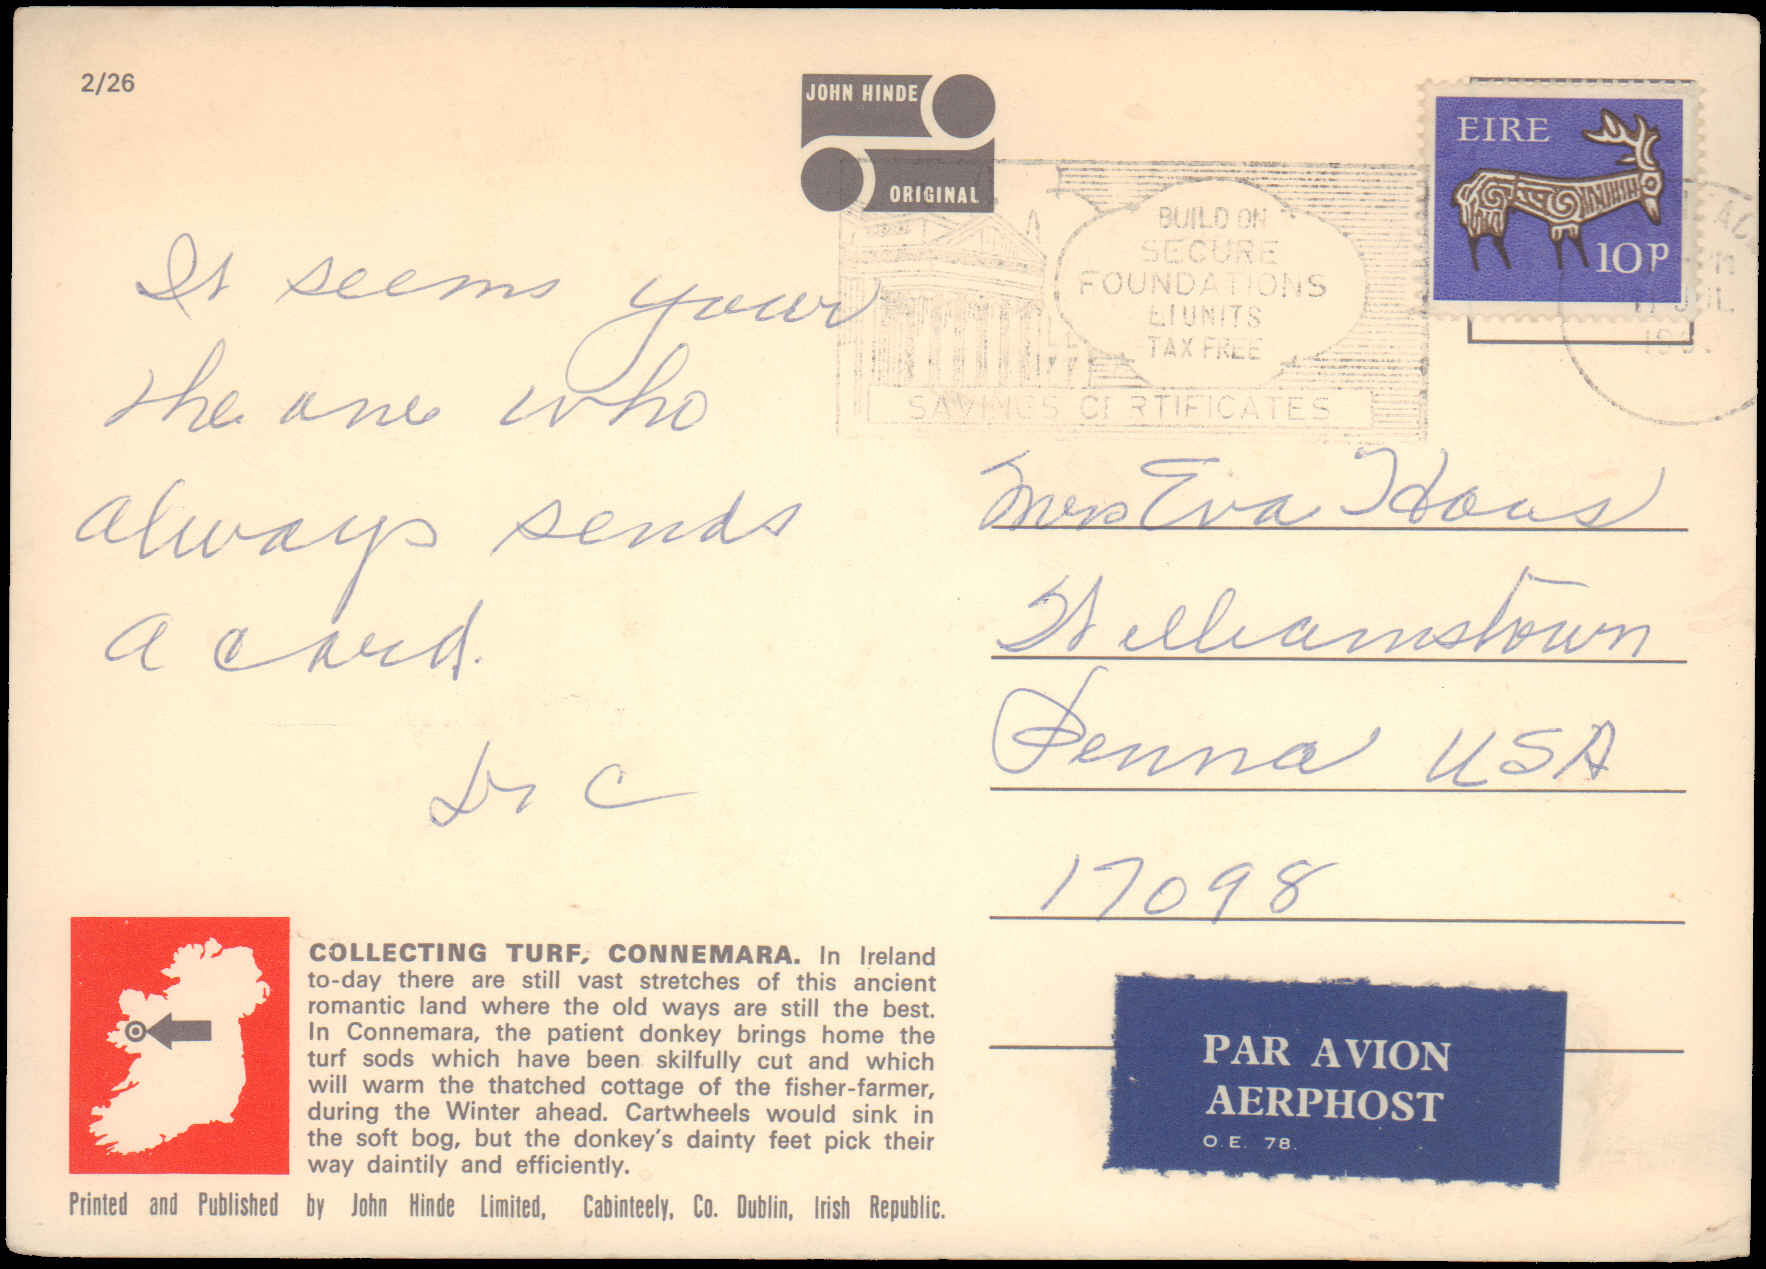 2/26
JOHN HINDE
ORIGINAL
EIRE
10p
BUILD ON
SECURE
FOUNDATIONS
£1 UNITS
TAX FREE
SAVINGS CERTIFICATES
It seems your
the one who
always sends
a card.
Dr C
Mrs Eva Haas
Williamstown
Penna USA
17098
COLLECTING TURF, CONNEMARA. In Ireland
to-day there are still vast stretches of this ancient
romantic land where the old ways are still the best.
In Connemara, the patient donkey brings home the
turf sods which have been skilfully cut and which
will warm the thatched cottage of the fisher-farmer,
during the Winter ahead. Cartwheels would sink in
the soft bog, but the donkey's dainty feet pick their
way daintily and efficiently.
Printed and Published by John Hinde Limited, Cabinteely, Co. Dublin, Irish Republic.
PAR AVION
AERPHOST
O.E. 78.